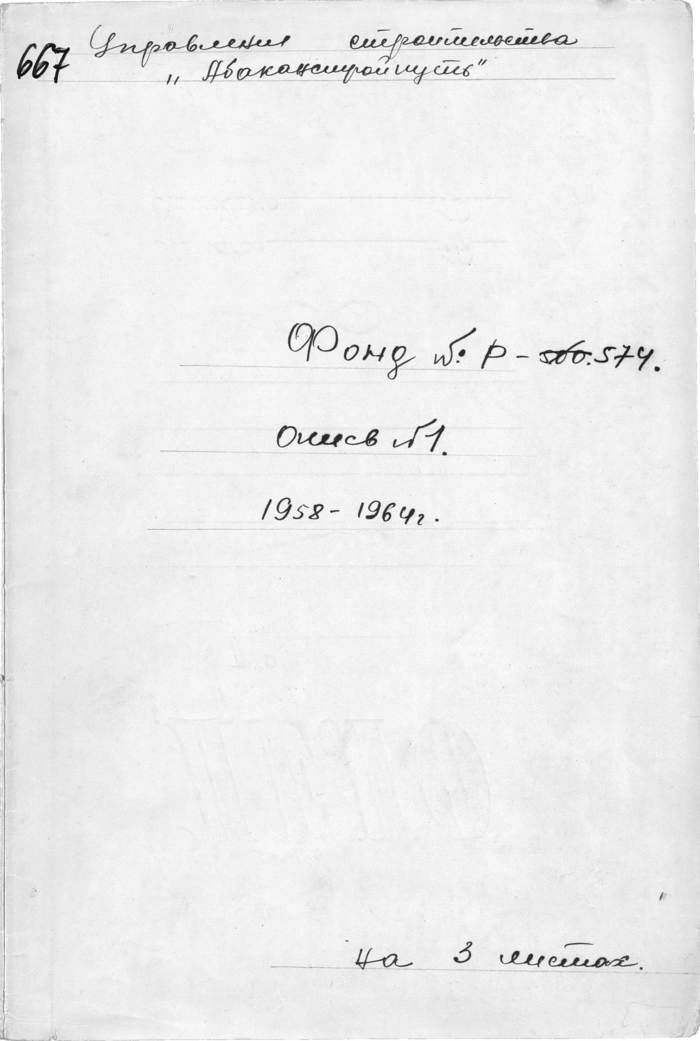 667 Управления строительства
„Абаканстройпуть"
Фонд № Р-560.574.
Опись №1.
1958-1964г.
на 3 листах.